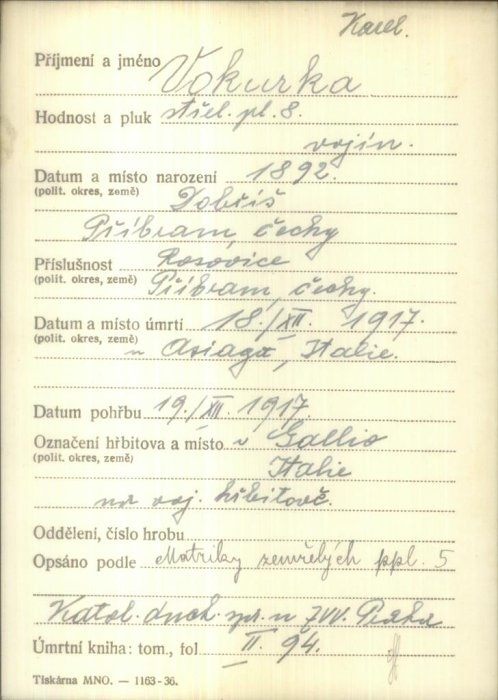 Karel.
Příjmení a jméno Vokurka
Hodnost a pluk střel. pl. 8.
vojín.
Datum a místo narození 1892.
(polit. okres, země) Dobříš
Příbram, Čechy
Příslušnost Rosovice
(polit. okres, země) Příbram, Čechy.
Datum a místo úmrtí 18./XII. 1917.
(polit. okres, země) u Asiaga, Italie.
Datum pohřbu 19./XII. 1917.
Označení hřbitova a místo v Gallio
(polit. okres, země) Italie
na voj. hřbitově.
Oddělení, číslo hrobu
Opsáno podle Matriky zemřelých ppl. 5
Katol. duch. spr. u ZVV. Praha
Úmrtní kniha: tom., fol II. 94.
Tiskárna MNO. — 1163-36.